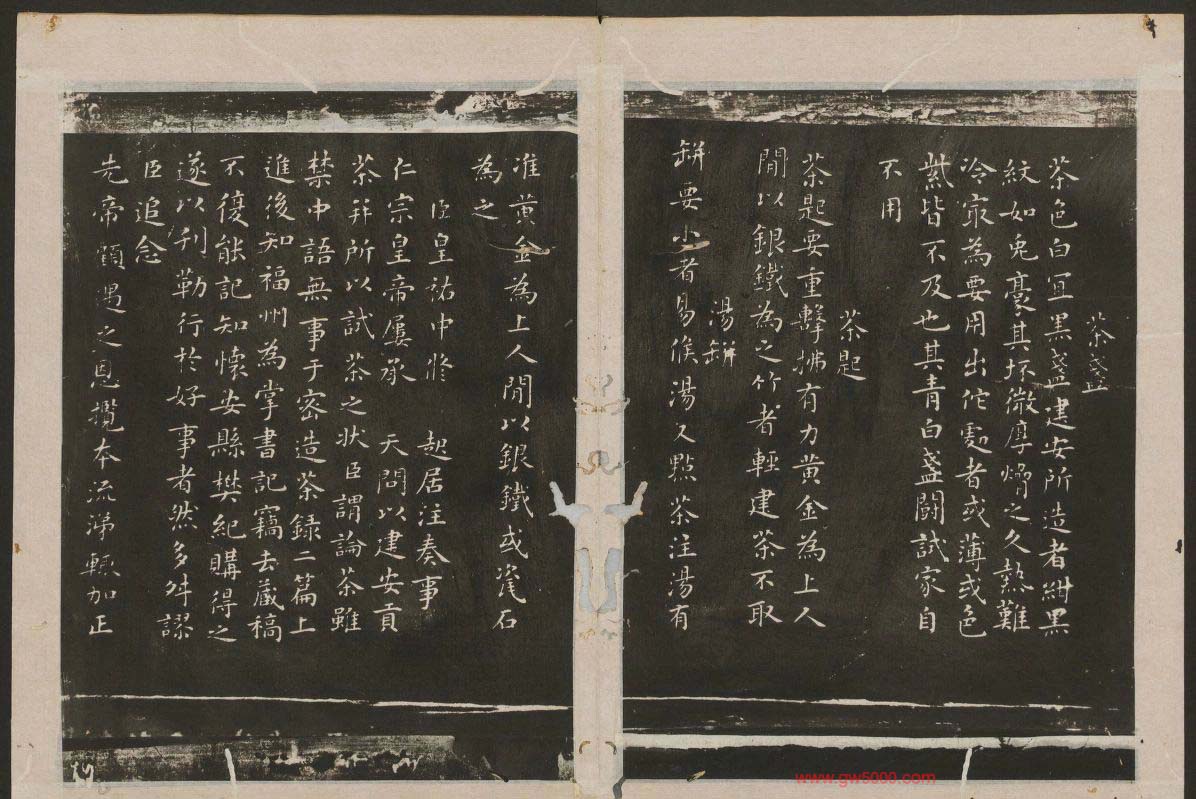 茶盞
茶色白宜黑盞建安所造者紺黑
紋如兔毫其坯微厚熁之久熱難
冷最為要用出佗處者或薄或色
紫皆不及也其青白盞鬬試家自
不用
茶匙
茶匙要重擊拂有力黃金為上人
閒以銀鐵為之竹者輕建茶不取
湯缾
缾要小者易候湯又點茶注湯有
准黃金為上人閒以銀鐵或瓷石
為之
臣皇祐中修 起居注奏事
仁宗皇帝屢承 天問以建安貢
茶并所以試茶之狀臣謂論茶雖
禁中語無事于密造茶錄二篇上
進後知福州為掌書記竊去藏稿
不復能記知懷安縣樊紀購得之
遂以刊勒行於好事者然多舛謬
臣追念
先帝顧遇之恩攬本流涕輒加正
www.gw5000.com